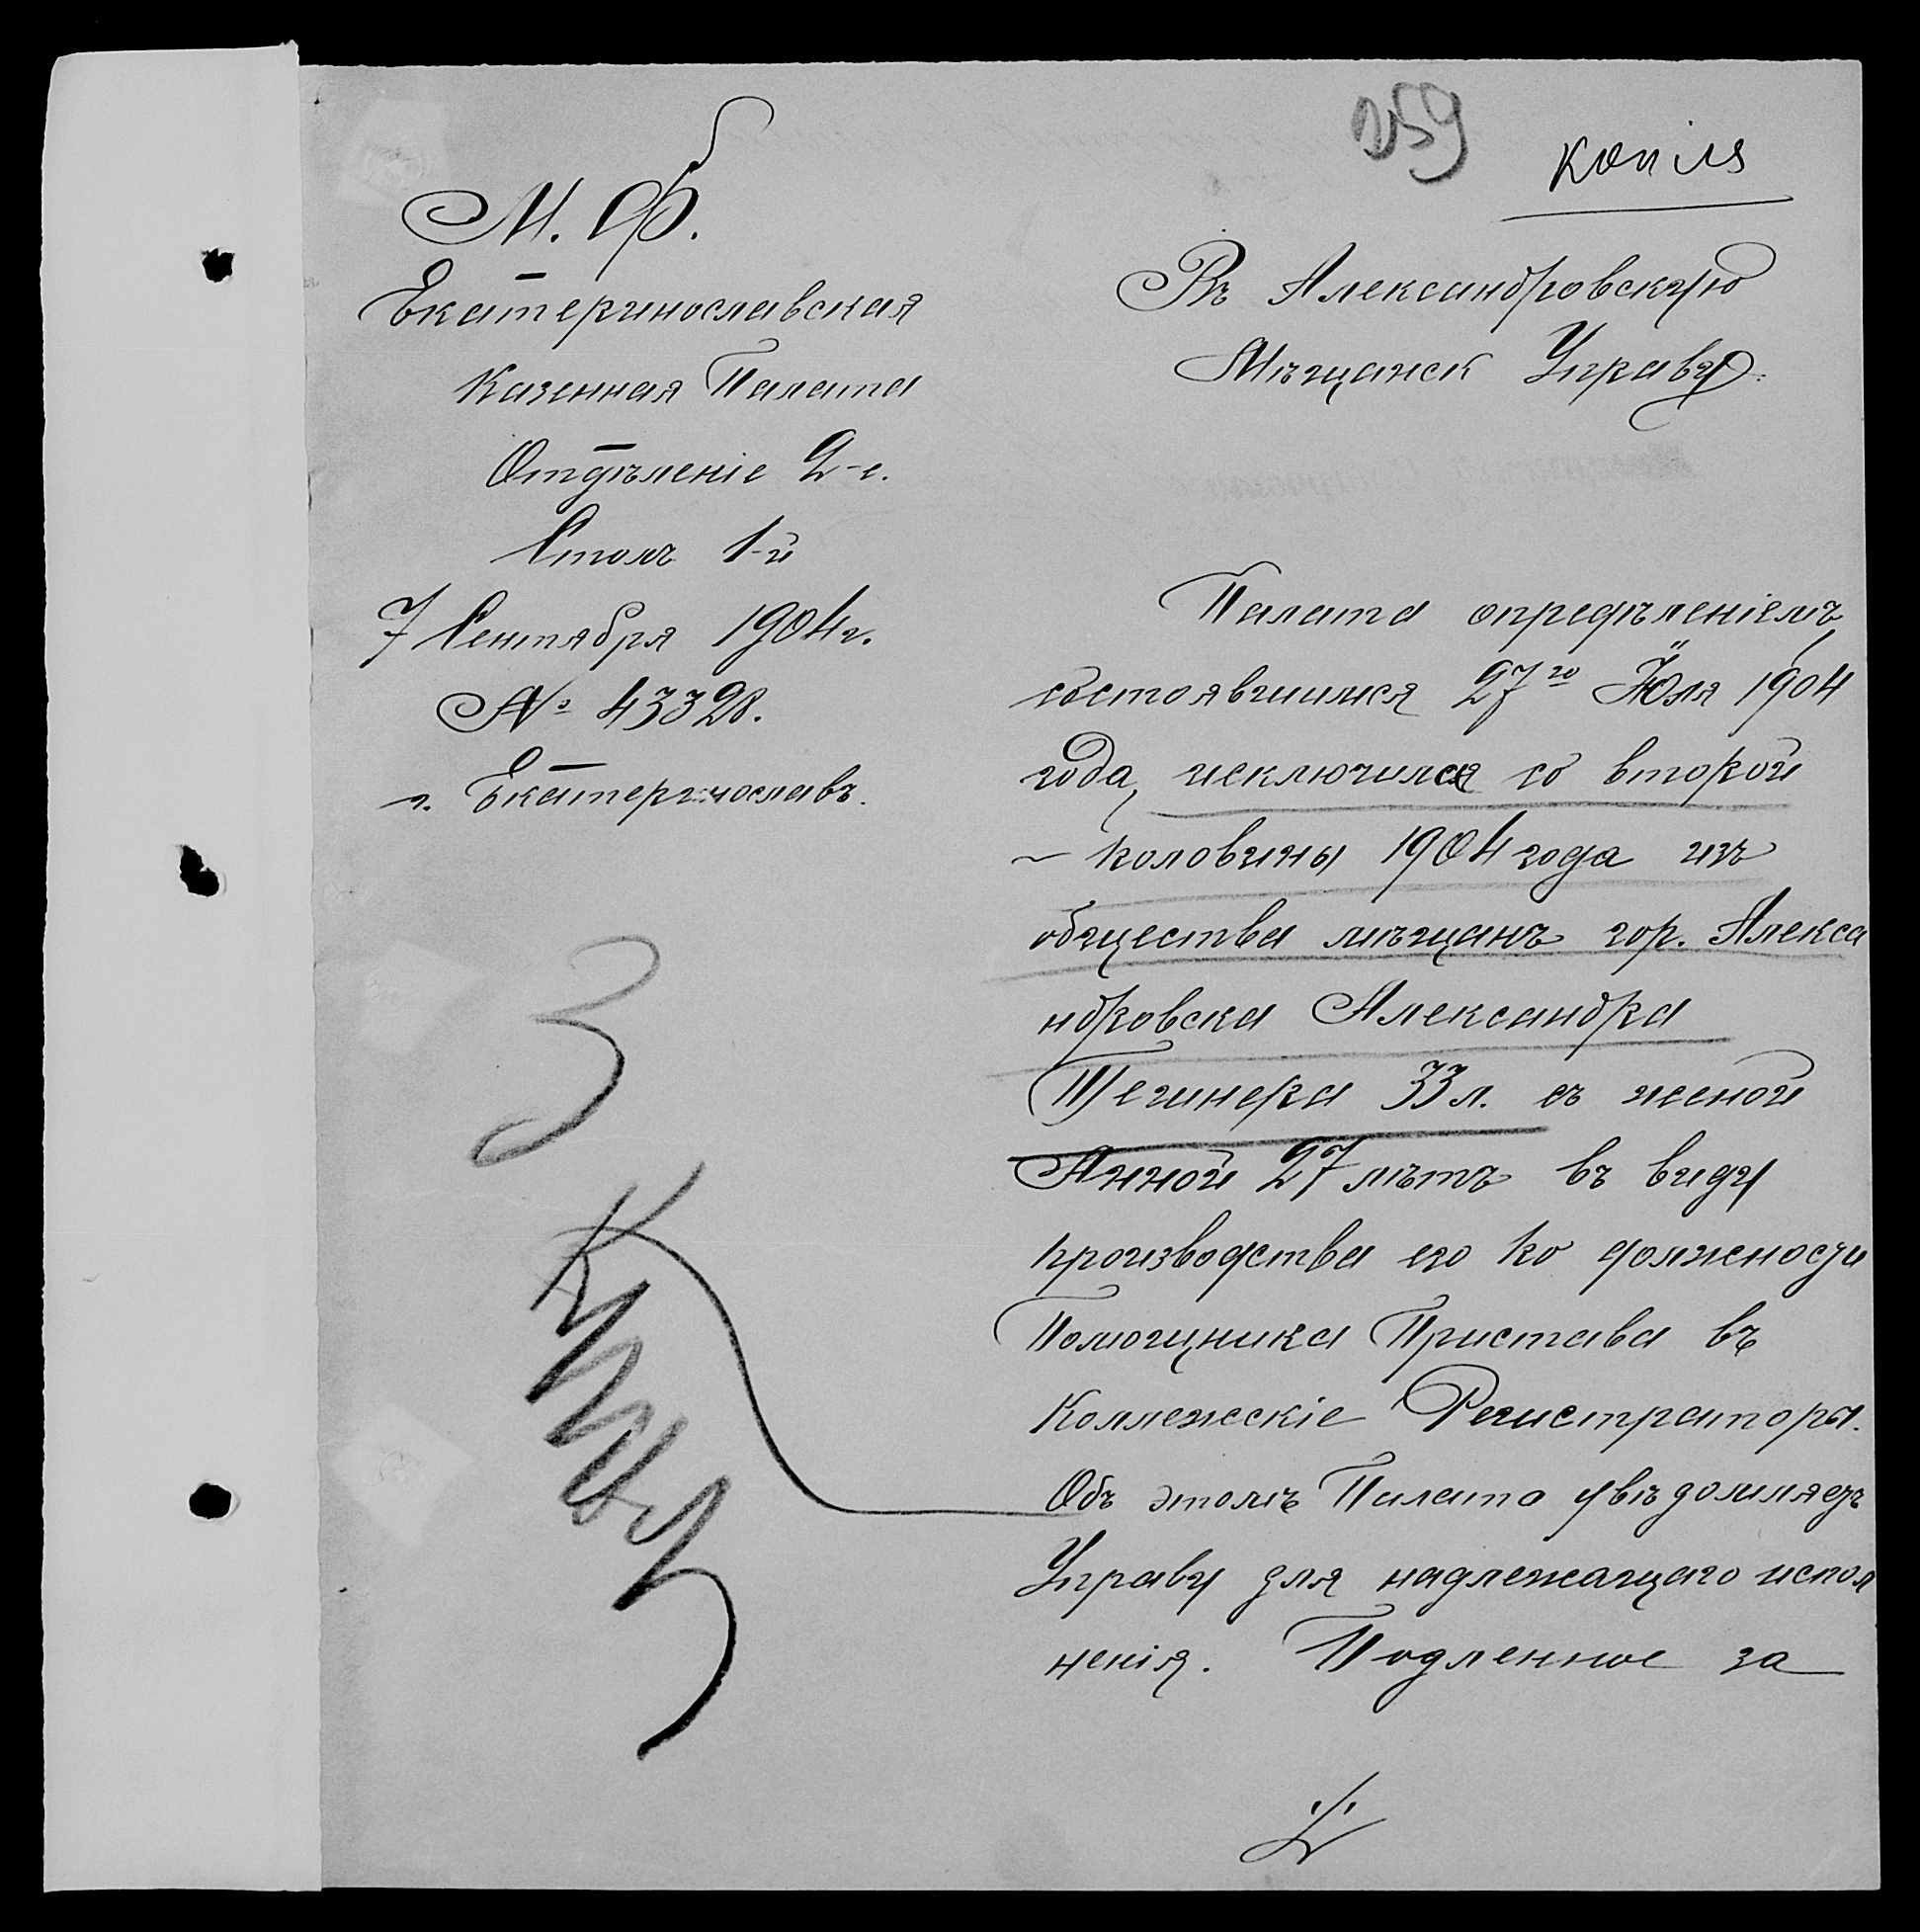 259
копія
М. Ф.
Екатеринославская
Казенная Палата
Отдѣленіе 2-е.
Столъ 1-й
7 Сентября 1904 г.
№ 43328.
г. Екатеринославъ.
Въ Александровскую
Мѣщанск Управу.
Палата опредѣленіемъ,
состоявшимся 27го Юля 1904
года, исключился со второй
половины 1904 года изъ
общества мѣщанъ гор. Алекса
ндровска Александра
33 л. съ женой
Анной 27 лѣтъ въ виду
производства его по должности
Помощника Пристава въ
Коллежскіе Регистраторы.
Объ этомъ Палата увѣдомляетъ
Управу для надлежащаго испол
ненія. Подленное за
3